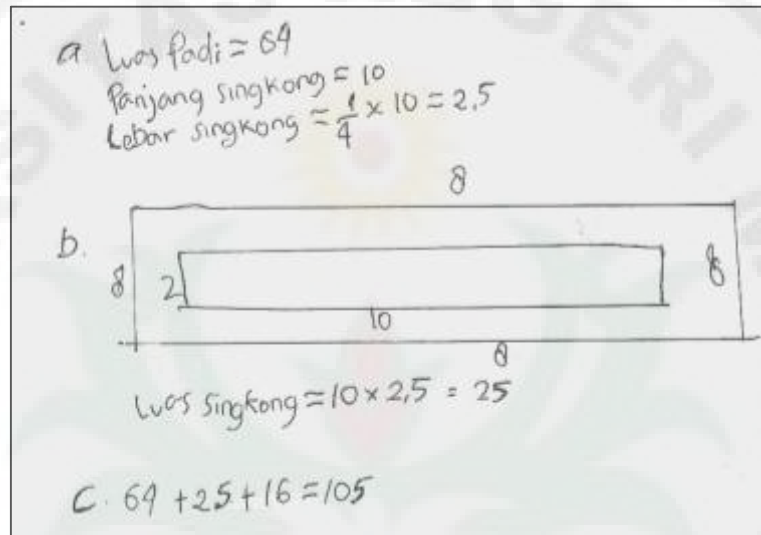 a Luas Padi = 64
Panjang singkong = 10
Lebar singkong = 1/4 × 10 = 2,5
8
b.
8 2 8
10
8
Luas singkong = 10 × 2,5 = 25
C. 64 + 25 + 16 = 105